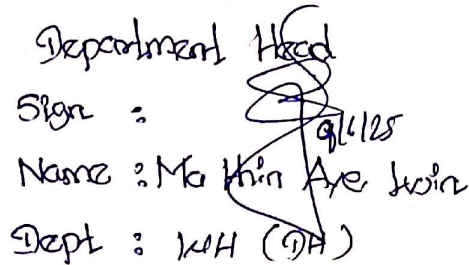 Department Head
Sign :
9/1/25
Name : Ma Khin Aye Win
Dept : WH (DH)